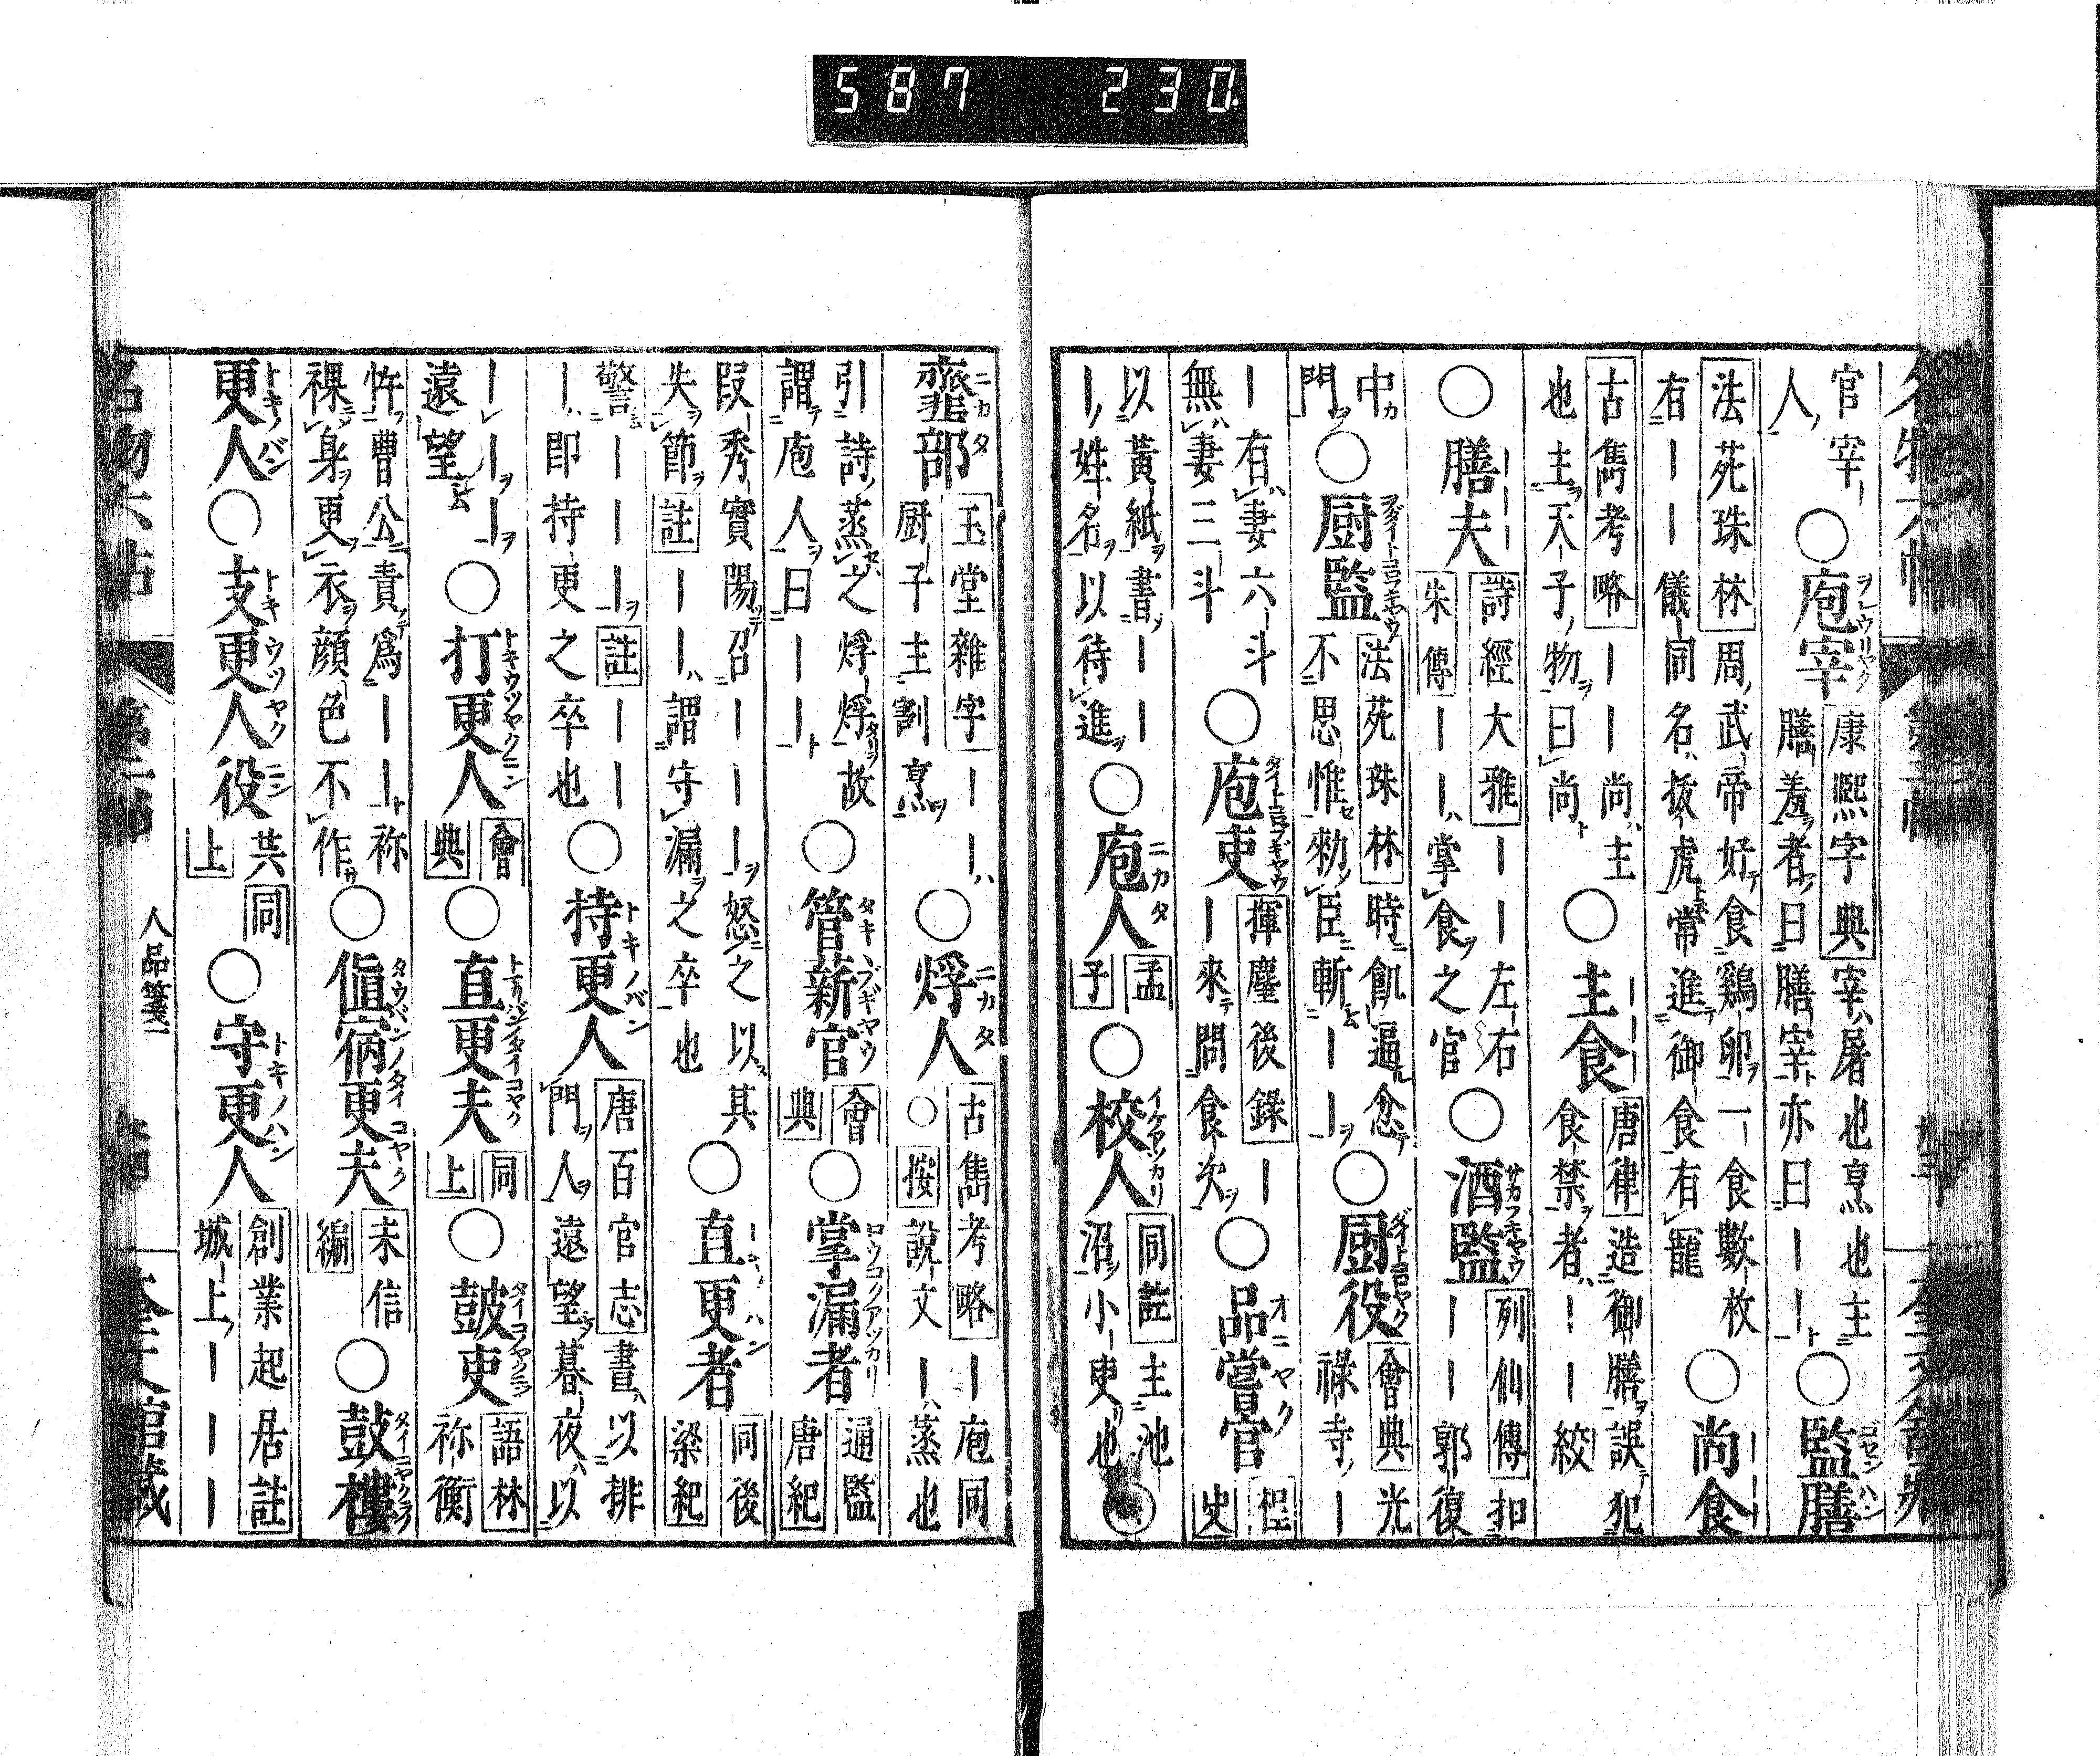 587 230
官宰人○庖宰康熙字典宰屠也烹也主膳羞者曰膳宰亦曰｜｜○監膳
法苑珠林周武帝好食鷄卵一食數枚有｜｜儀同名拔虎常進御食有寵○尚食
古雋考略｜｜尚主也主天子物曰尚○主食唐律造御膳誤犯食禁者｜｜絞
○膳夫詩經大雅｜｜左右朱傳｜｜掌食之官○酒監列仙傳｜｜郭復扣
中門○厨監法苑珠林時飢逼忿不思惟勑臣斬｜｜○厨役會典光祿寺｜
｜有妻六斗無妻三斗○庖吏揮麈後錄｜來問食次○品嘗官桯史
以黃紙書｜｜｜姓名以待進○庖人孟子○校人同註主池沼小吏也○
韲部玉堂雜字｜｜厨子主割烹○烰人古雋考略｜庖同○按說文｜蒸也
引詩蒸之烰烰故謂庖人曰｜｜○管薪官會典○掌漏者通鑑唐紀
段秀實陽召｜｜｜怒之以其失節註｜｜謂守漏之卒也○直更者同後梁紀
警｜｜｜註｜｜｜即持更之卒也○持更人唐百官志晝以排門人遠望暮夜以
｜｜｜遠望○打更人會典○直更夫同上○鼓吏語林祢衡
忤曹公責爲｜｜祢裸身更衣顔色不作○値宿更夫未信編○鼓樓
更人○支更人役共同上○守更人創業起居註城上｜｜｜
名物六帖 第二帖 人品箋二